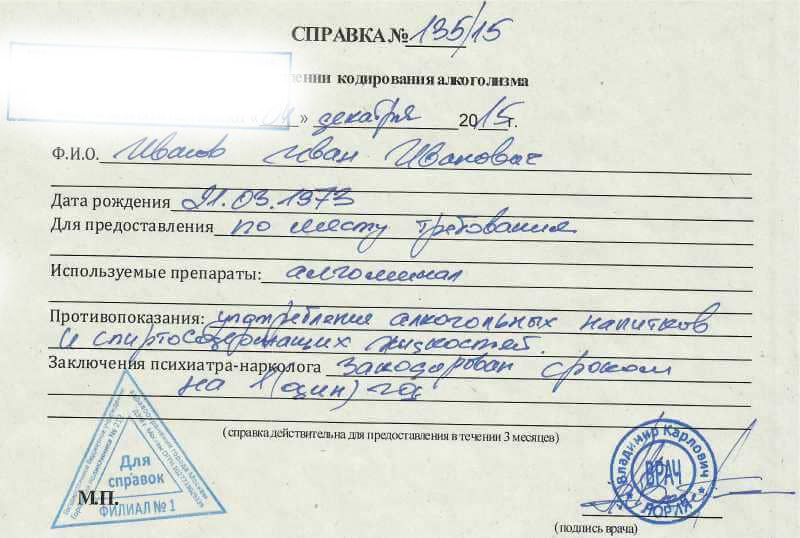 СПРАВКА № 135/15
кодирования алкоголизма
» декабря 2015 г.
Ф.И.О. Иванов Иван Иванович
Дата рождения 21.03.1973
Для предоставления по месту требования
Используемые препараты: алгоминал
Противопоказания: употребление алкогольных напитков
и спиртосодержащих жидкостей.
Заключения психиатра-нарколога Закодирован сроком
на 1 (один) год
(справка действительна для предоставления в течении 3 месяцев)
Для
справок
ФИЛИАЛ № 1
М.П.
Владимир Карлович
ВРАЧ
(подпись врача)